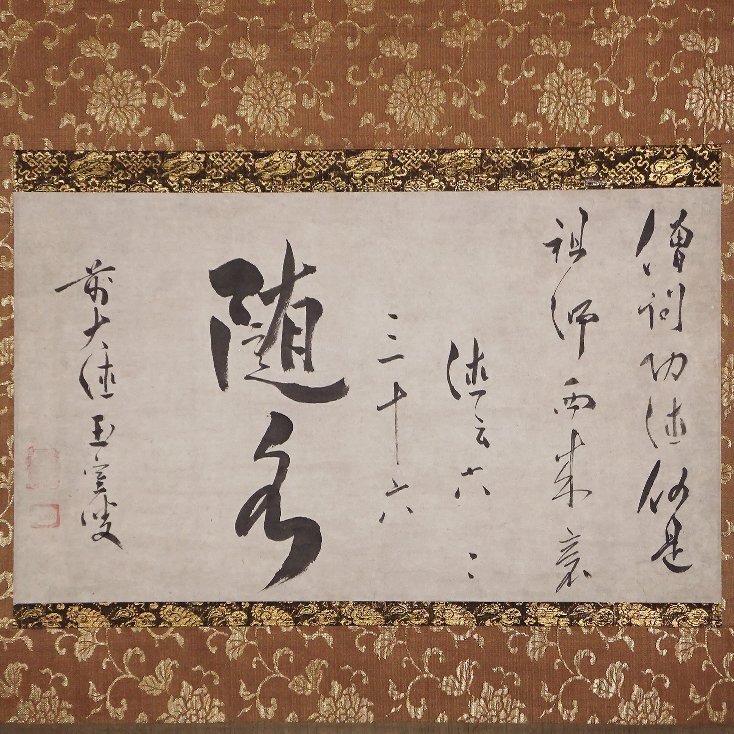 僧問功徳何是
祖師西来意
徳云六々
三十六
随
前大徳玉室叟